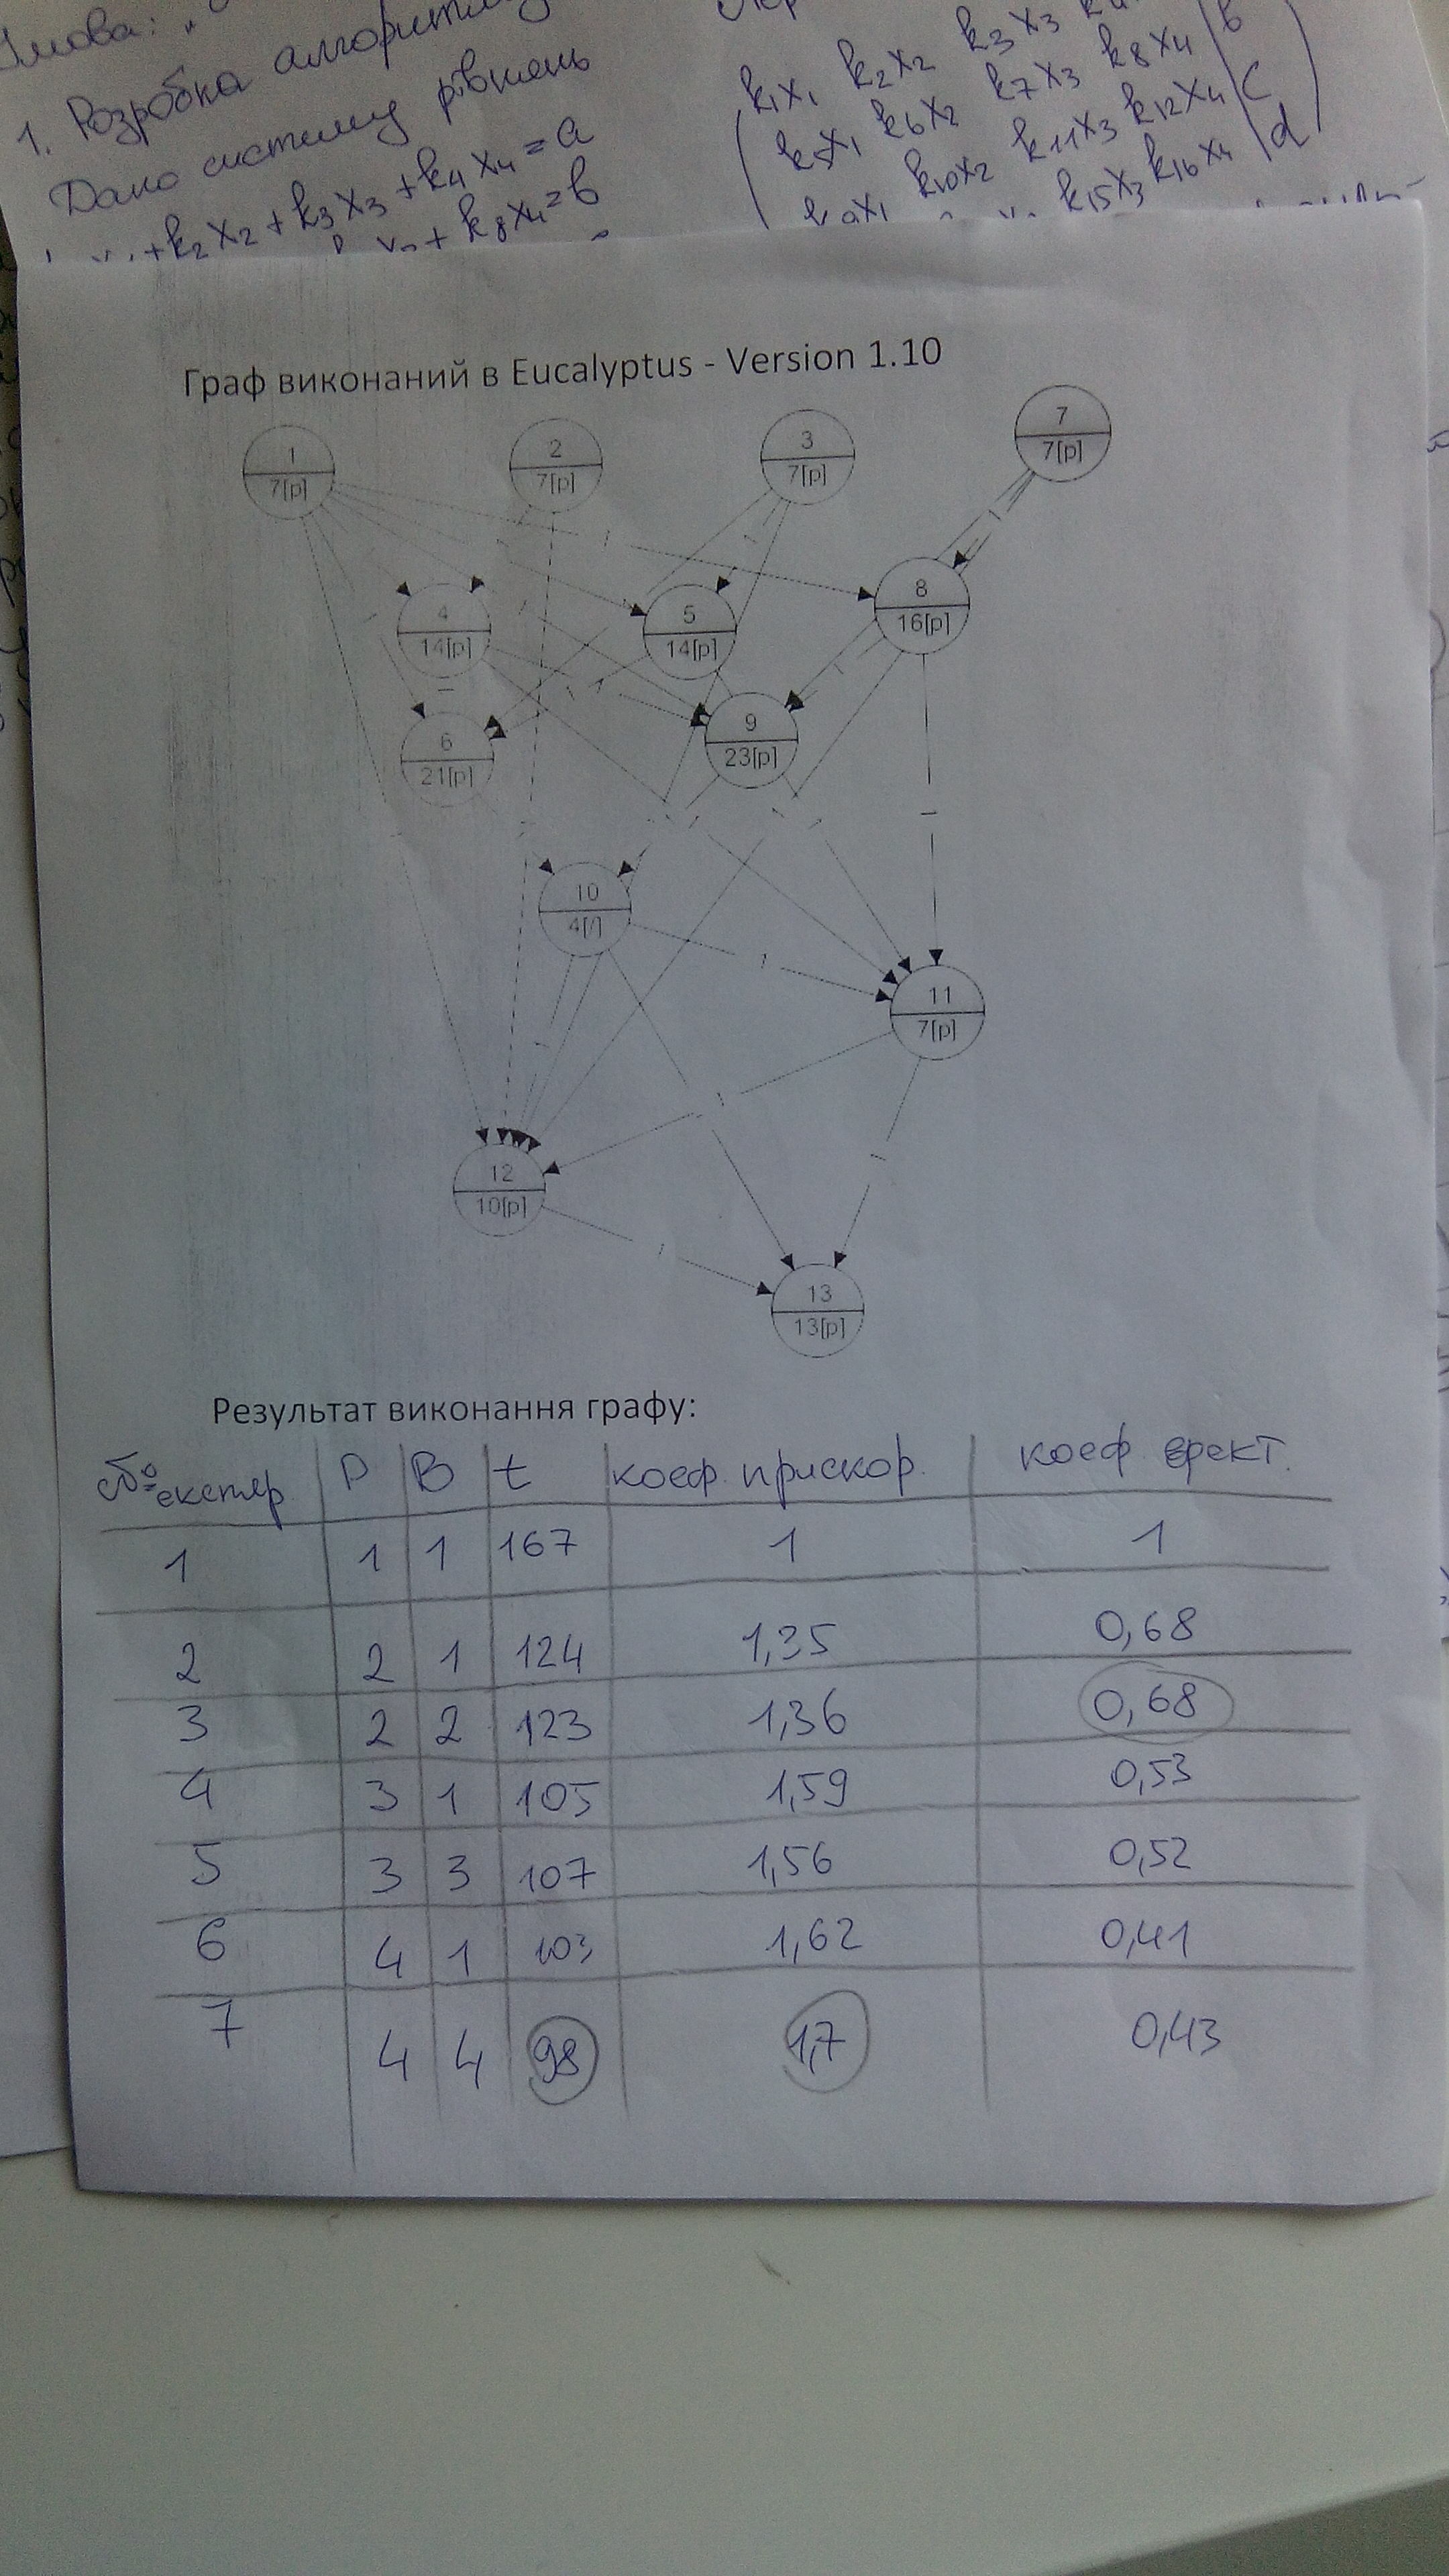 Умова:
1. Розробка алгоритму
Дано систему рівнянь
+k2x2+k3x3+k4x4=a
+k8x4=b
k1x1 k2x2 k3x3
k5x1 k6x2 k7x3 k8x4 | b
k10x2 k11x3 k12x4 | c
k15x3 k16x4 | d
Граф виконаний в Eucalyptus - Version 1.10
1
7[p]
2
7[p]
3
7[p]
7
7[p]
4
14[p]
5
14[p]
8
16[p]
6
21[p]
9
23[p]
10
4[/]
11
7[p]
12
10[p]
13
13[p]
Результат виконання графу:
№ експер. P B t коеф. прискор. коеф. ефект.
1 1 1 167 1 1
2 2 1 124 1,35 0,68
3 2 2 123 1,36 0,68
4 3 1 105 1,59 0,53
5 3 3 107 1,56 0,52
6 4 1 103 1,62 0,41
7 4 4 98 1,7 0,43